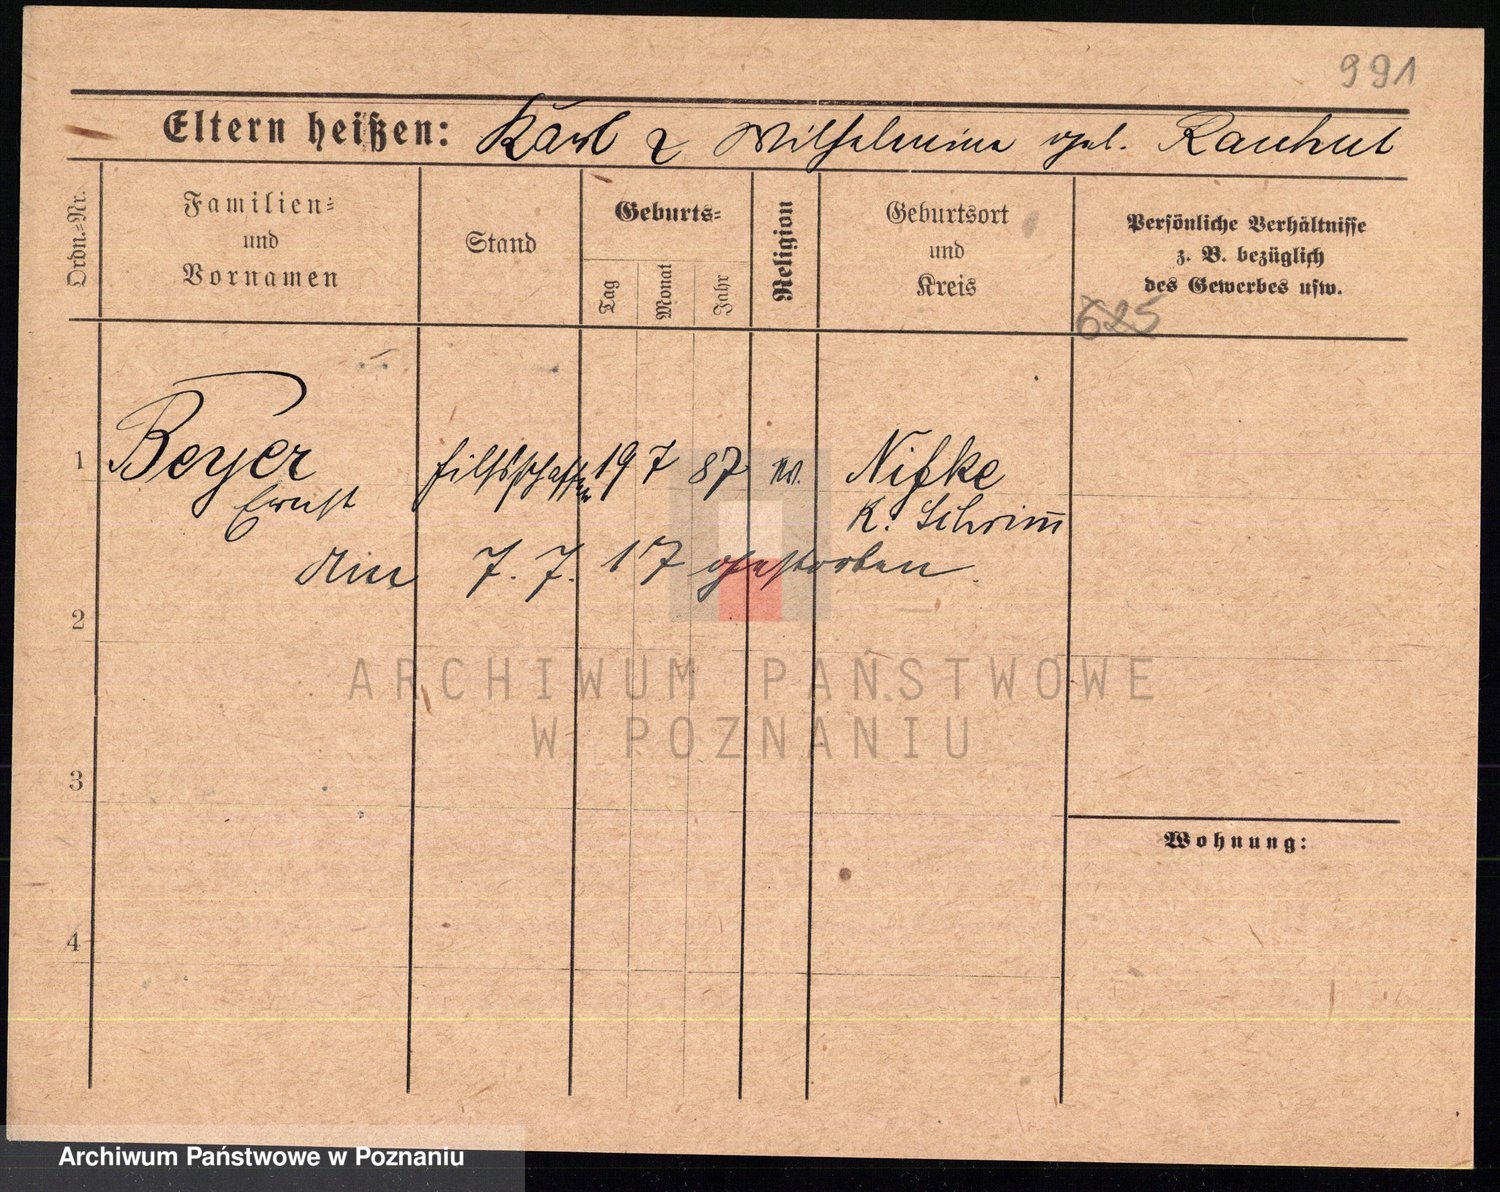 991
Eltern heißen: Karl & Wilhelmine geb. Rauhut
Ordn.-Nr.
Familien- und Vornamen
Stand
Geburts-
Tag
Monat
Jahr
Religion
Geburtsort und Kreis
Persönliche Verhältnisse
z. B. bezüglich
des Gewerbes usw.
625
1 Beyer 19 7 87 ev.
Ernst K. Schrimm
Am 7. 7. 17 gestorben.
2
3
4
Wohnung:
ARCHIWUM PAŃSTWOWE
W POZNANIU
Archiwum Państwowe w Poznaniu